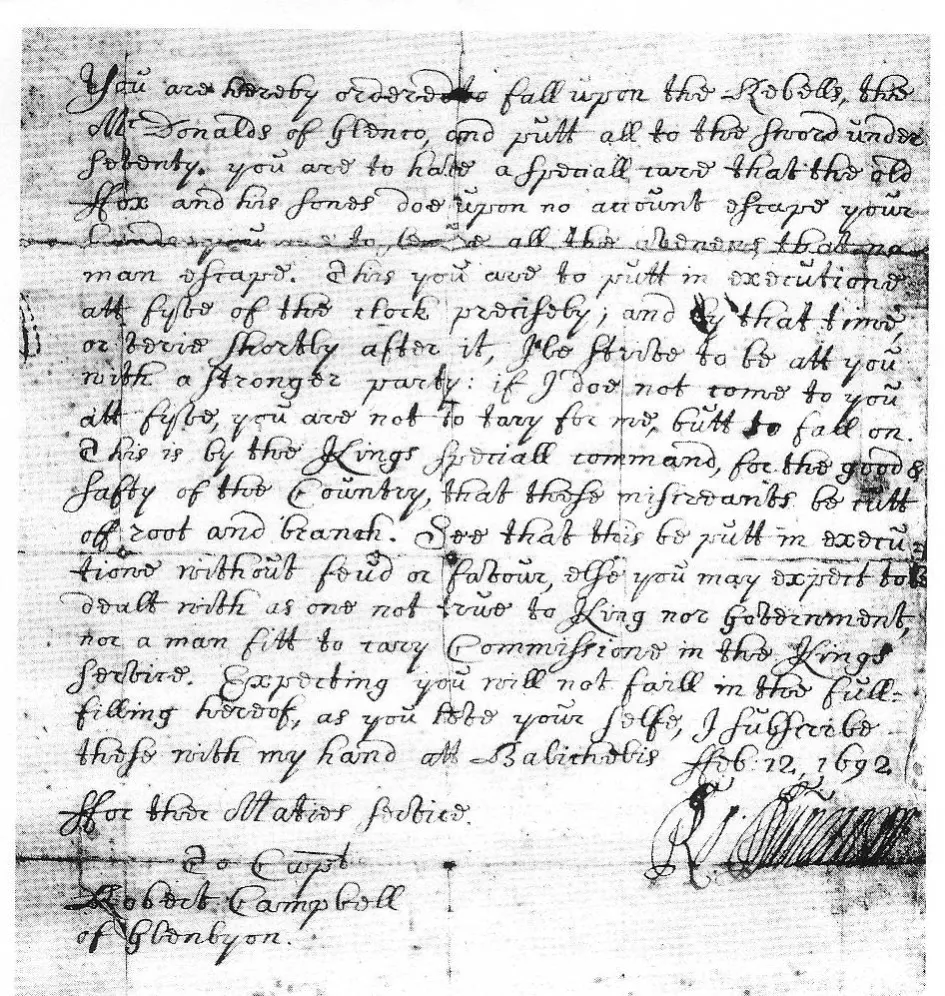 You are hereby ordered to fall upon the Rebells, the
McDonalds of Glenco, and putt all to the sword under
seventy. you are to have a speciall care that the old
ffox and his sones doe upon no account escape your
hands, you are to secure all the avenues that no
man escape. This you are to putt in executione
att fyve of the clock precisely; and by that time,
or verie shortly after it, I'le strive to be att you
with a stronger party: if I doe not come to you
att fyve, you are not to tary for me, butt to fall on.
This is by the Kings speciall command, for the good &
safty of the Country, that these miscreants be cutt
off root and branch. See that this be putt in execu
tione without feud or favour, else you may expect to be
dealt with as one not true to King nor Government,
nor a man fitt to cary Commissione in the Kings
service. Expecting you will not faill in the full-
filling hereof, as you love your selfe, I subscribe
these with my hand att Balicholis ffeb: 12, 1692
ffor ther Maties service.
To Capt
Robert Campbell
of Glenlyon.